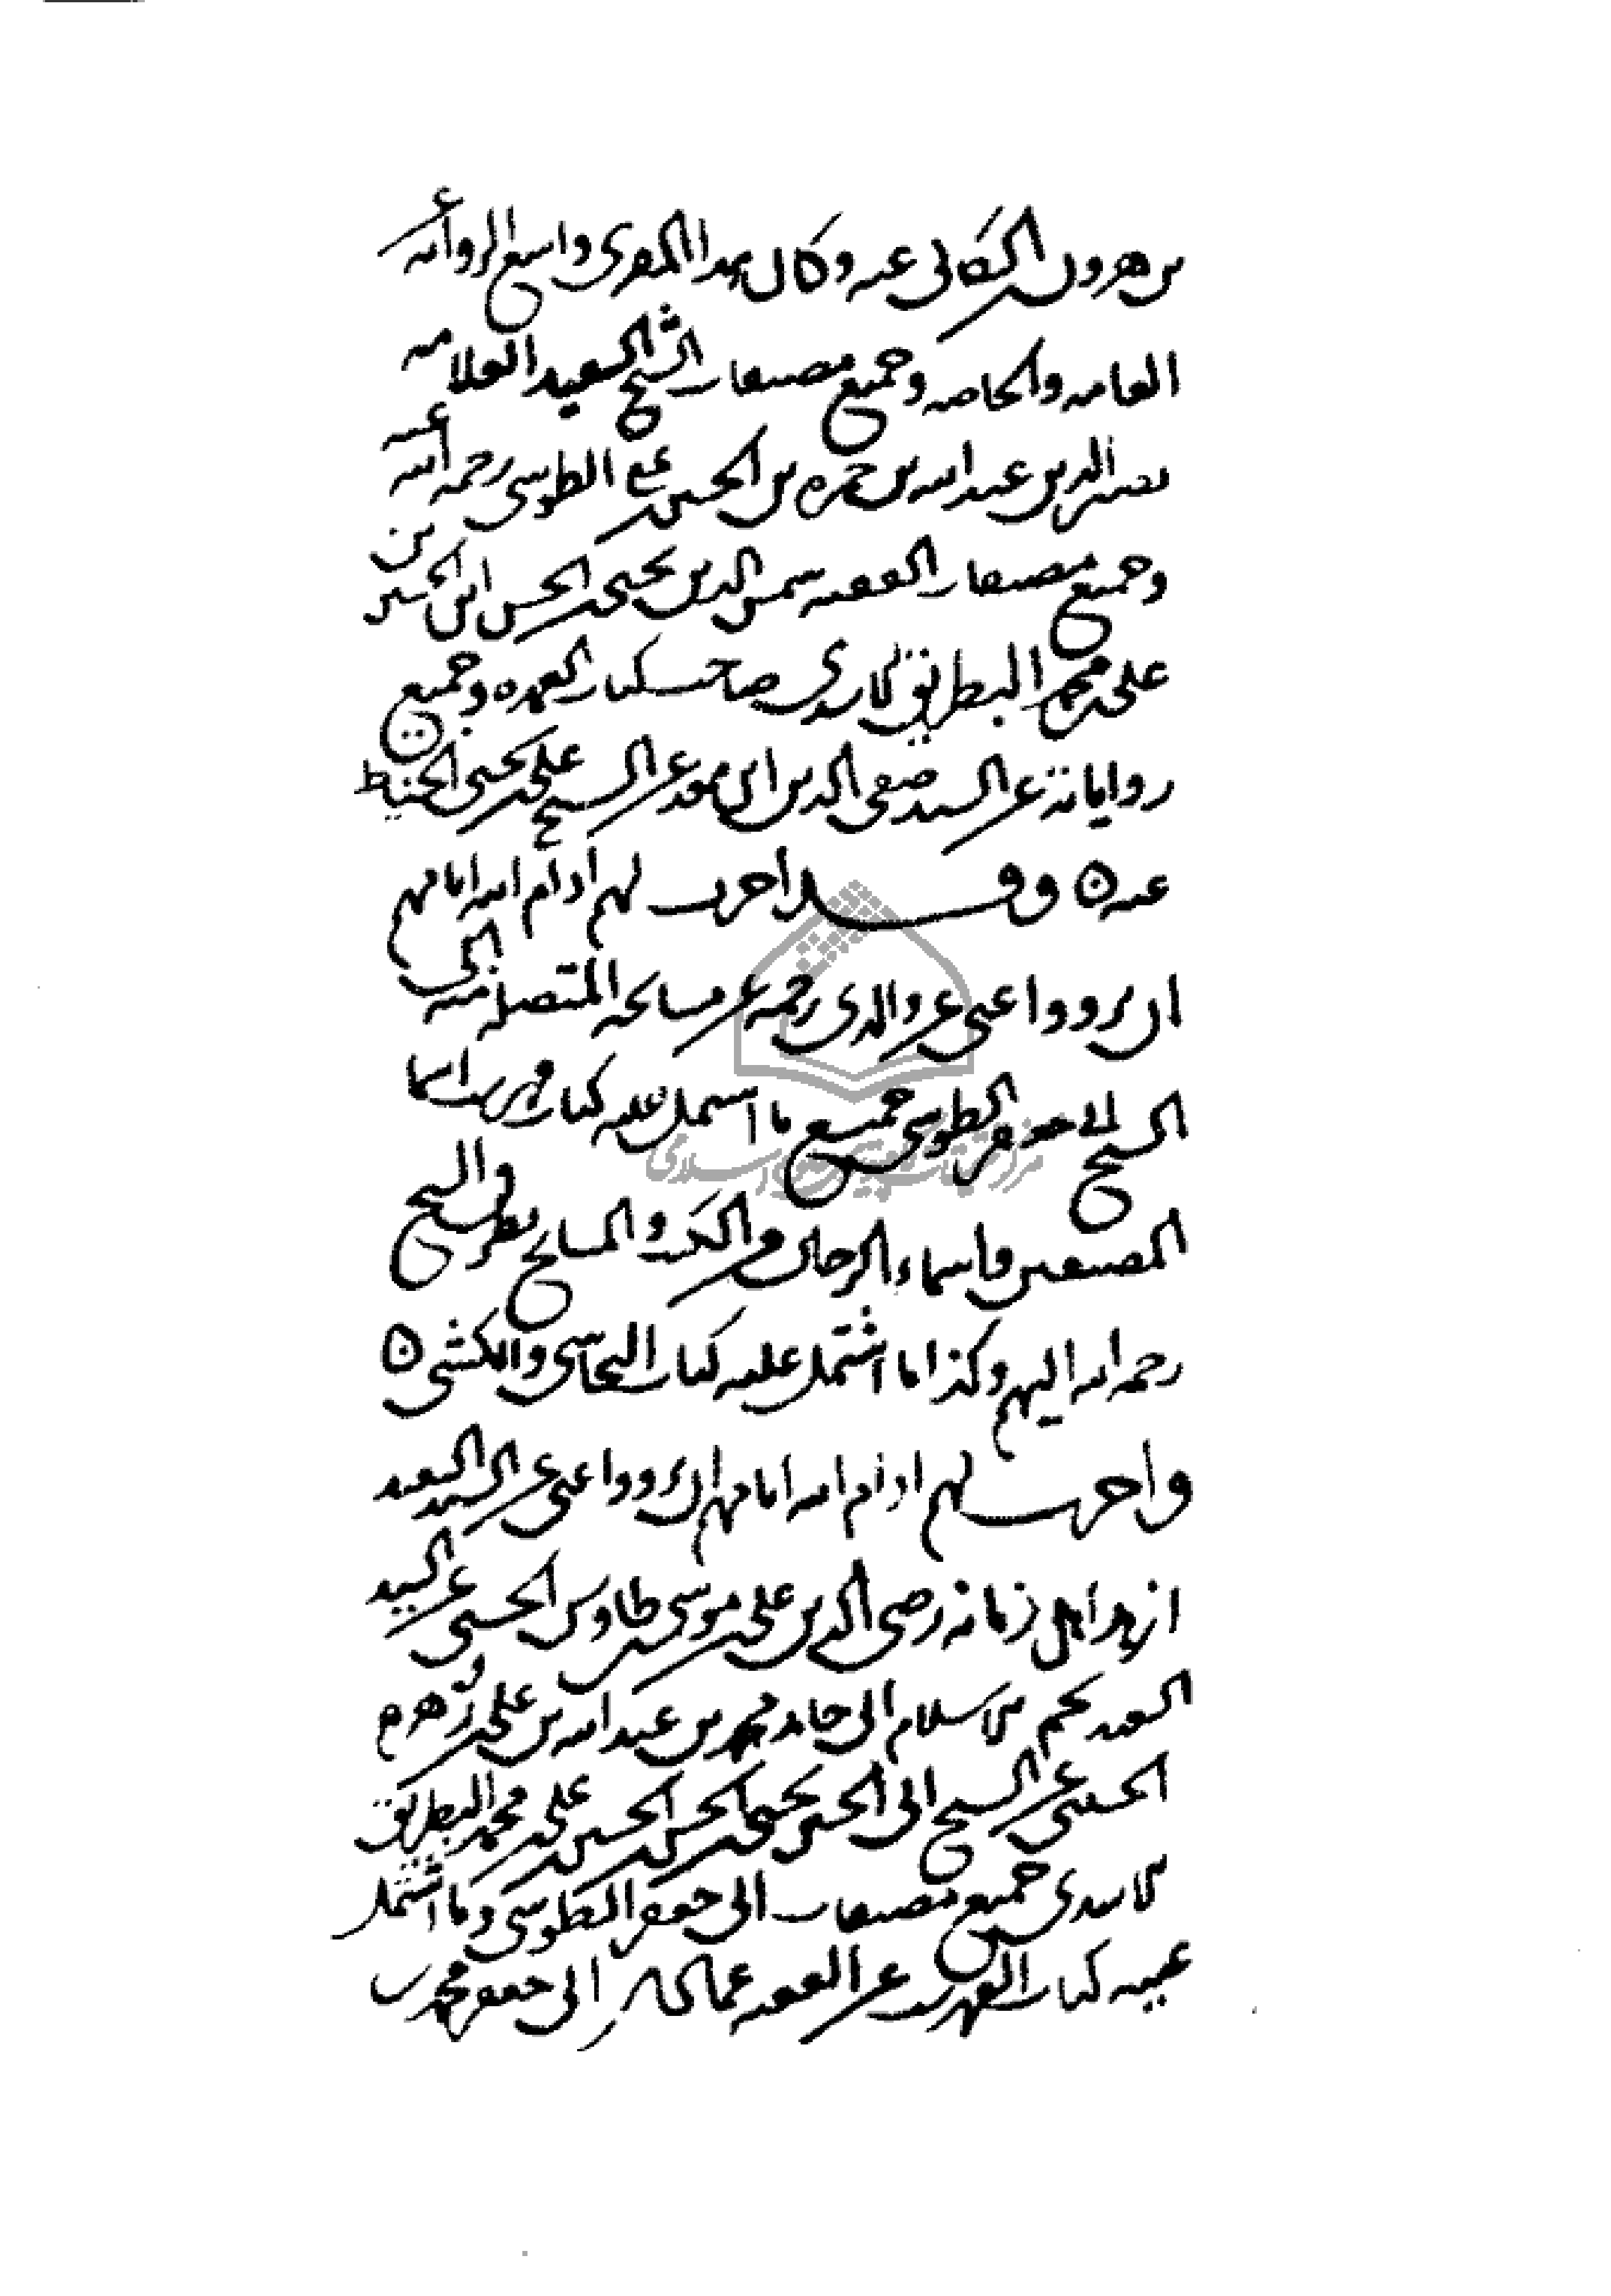 بن هرون الكالى عنه وكان هدا المقرى واسع الروايه عن
العامه والخاصه وجميع مصنفات الشيخ السعيد العلامه
نصير الدين عبد الله بن حمزه بن الحسن الطوسى رحمه الله عنه
وجميع مصنفات الفقيه شمس الدين يحيى بن الحسن ابن الحسين بن
على بن محمد البطريق الاسدى صاحب كتاب العمده وجميع
رواياته عن السيد صفى الدين ابن معد عن الشيخ على بن يحيى الخياط
عنه ٥ وقد اجزت لهم ادام الله ايامهم
ان يرووا عنى عن والدى رحمه عن مشايخه المتصله منه الى
الشيخ ابى جعفر الطوسى جميع ما اشتمل عليه كتاب فهرست اسما
المصنفين واسماء الرجال من الكتب والمشايخ بطرق الشيخ
رحمه الله اليهم وكذا ما اشتمل عليه كتاب النجاشى والكشى ٥
واجزت لهم ادام الله ايامهم ان يرووا عنى عن السيد السعيد
ازهد اهل زمانه رضى الدين على بن موسى بن طاوس الحسنى عن السيد
السعيد محيى الاسلام ابى حامد محمد بن عبد الله بن على بن زهره
الحسينى عن الشيخ ابى الحسين يحيى بن الحسن بن الحسين بن على بن محمد البطريق
الاسدى جميع مصنفات ابى جعفر الطوسى وما اشتمل
عليه كتاب الفهرست عن الفقيه عماد الدين ابى جعفر محمد بن